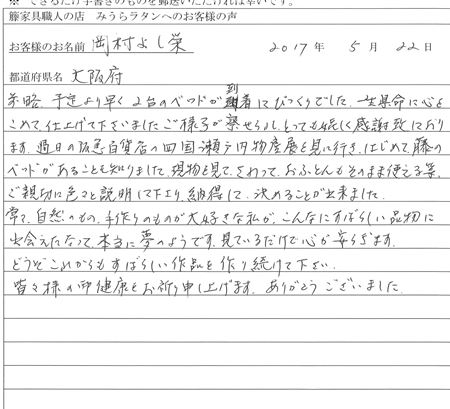 ※ できるだけ手書きのものを郵送いただければ幸いです。
籐家具職人の店 みうらラタンへのお客様の声
お客様のお名前 岡村よし栄 2017年 5月 22日
都道府県名 大阪府
前略、予定より早く2台のベッドが到着にびっくりでした。一生県命に心を
こめて、仕上げて下さいましたご様子が察せられ、とっても嬉しく感謝致しており
ます。過日の阪急百貨店の四国瀬戸内物産展を見に行き、はじめて籐の
ベッドがあることを知りました。現物を見て、さわって、おふとんもそのまま使える等、
ご親切に色々と説明して下さり、納得して、決めることが出来ました。
常て、自然のもの、手作りのものが大好きな私が、こんなにすばらしい品物に
出会えたなって、本当に夢のようです。見ているだけで心が安らぎます。
どうぞこれからもすばらしい作品を作り続けて下さい。
皆々様の御健康をお祈り申し上げます。ありがとうございました。